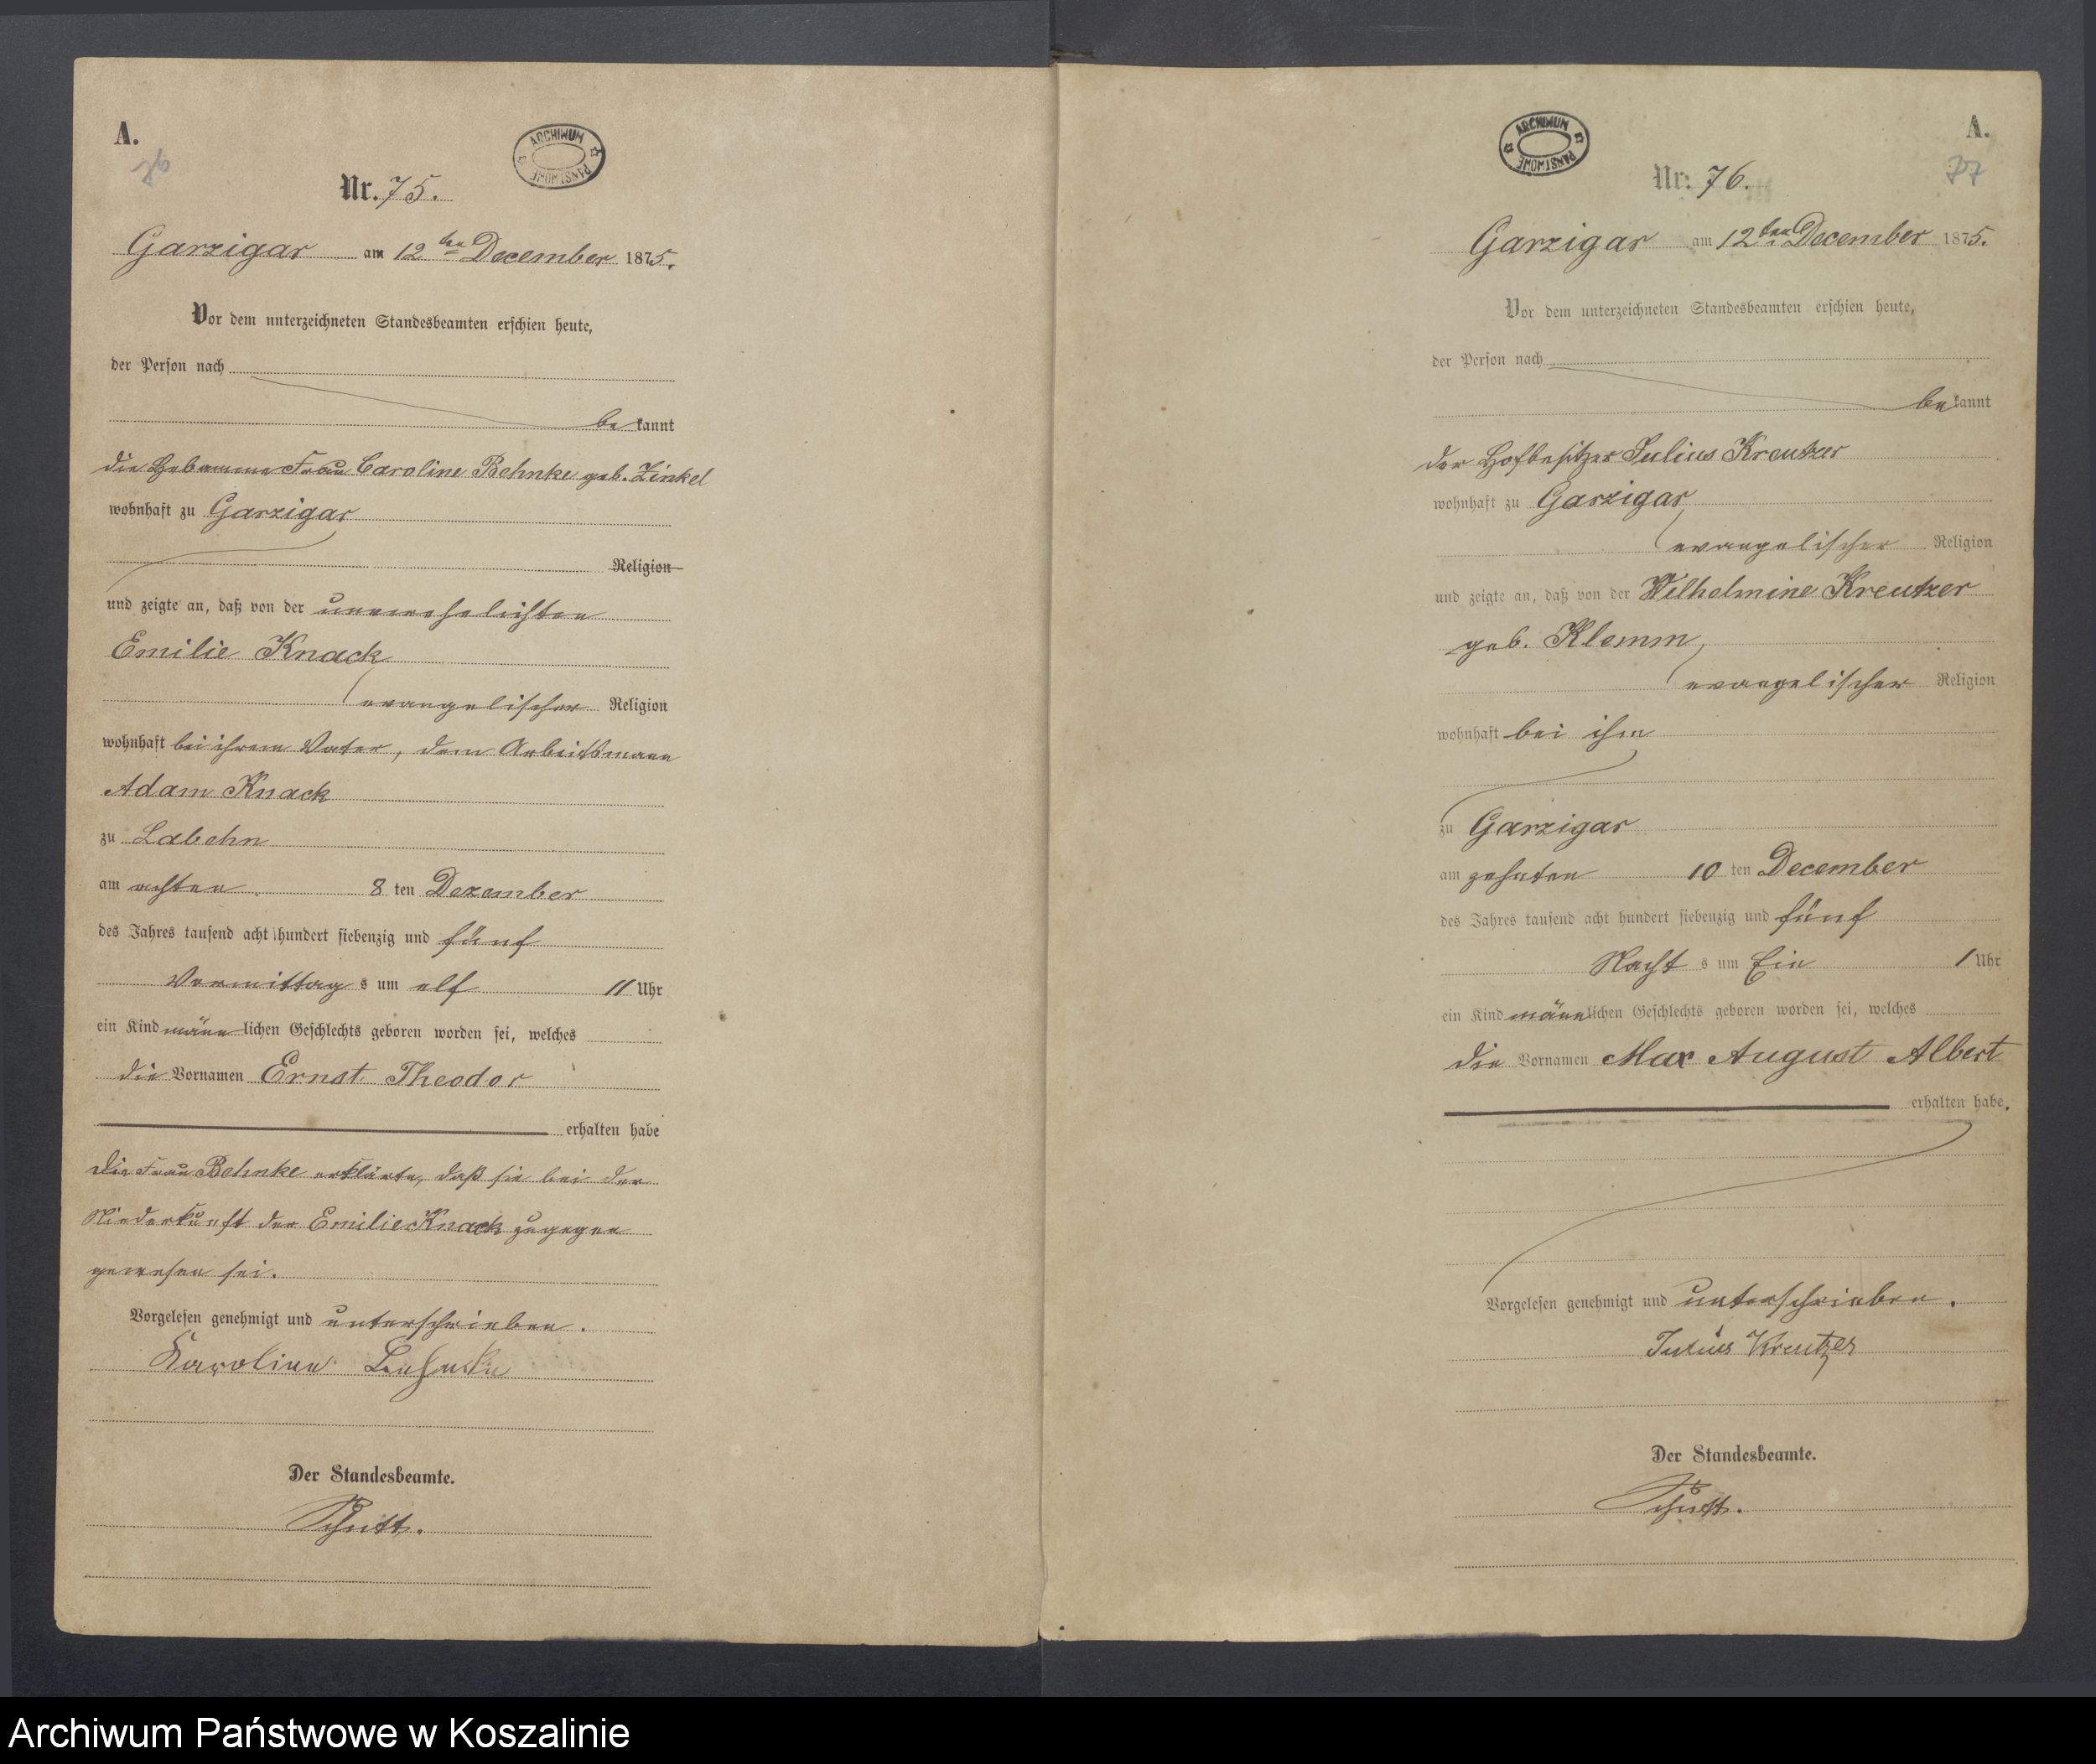 A.
76
ARCHIWUM PAŃSTWOWE
Nr. 75.
Garzigar am 12ten December 1875.
Vor dem unterzeichneten Standesbeamten erschien heute,
der Person nach
be kannt
die Hebamme Frau Caroline Behnke geb. Zinkel
wohnhaft zu Garzigar
Religion
und zeigte an, daß von der unverehelichten
Emilie Knack
evangelischer Religion
wohnhaft bei ihrem Vater, dem Arbeitsmann
Adam Knack
zu Labehn
am achten 8 ten Dezember
des Jahres tausend acht hundert siebenzig und fünf
Vormittag s um elf 11 Uhr
ein Kind männ lichen Geschlechts geboren worden sei, welches
die Vornamen Ernst Theodor
erhalten habe
Die Frau Behnke erklärte, daß sie bei der
Niederkunft der Emilie Knack zugegen
gewesen sei.
Vorgelesen genehmigt und unterschrieben.
Karoline Behnke
Der Standesbeamte.
A.
77
ARCHIWUM PAŃSTWOWE
Nr: 76.
Garzigar am 12ten December 1875.
Vor dem unterzeichneten Standesbeamten erschien heute,
der Person nach
be kannt
der Hofbesitzer Julius Kreutzer
wohnhaft zu Garzigar
evangelischer Religion
und zeigte an, daß von der Wilhelmine Kreutzer
geb. Klemm
evangelischer Religion
wohnhaft bei ihm
zu Garzigar
am zehnten 10 ten December
des Jahres tausend acht hundert siebenzig und fünf
Nacht s um Ein 1 Uhr
ein Kind männlichen Geschlechts geboren worden sei, welches
die Vornamen Max August Albert
erhalten habe.
Vorgelesen genehmigt und unterschrieben.
Julius Kreutzer
Der Standesbeamte.
Archiwum Państwowe w Koszalinie